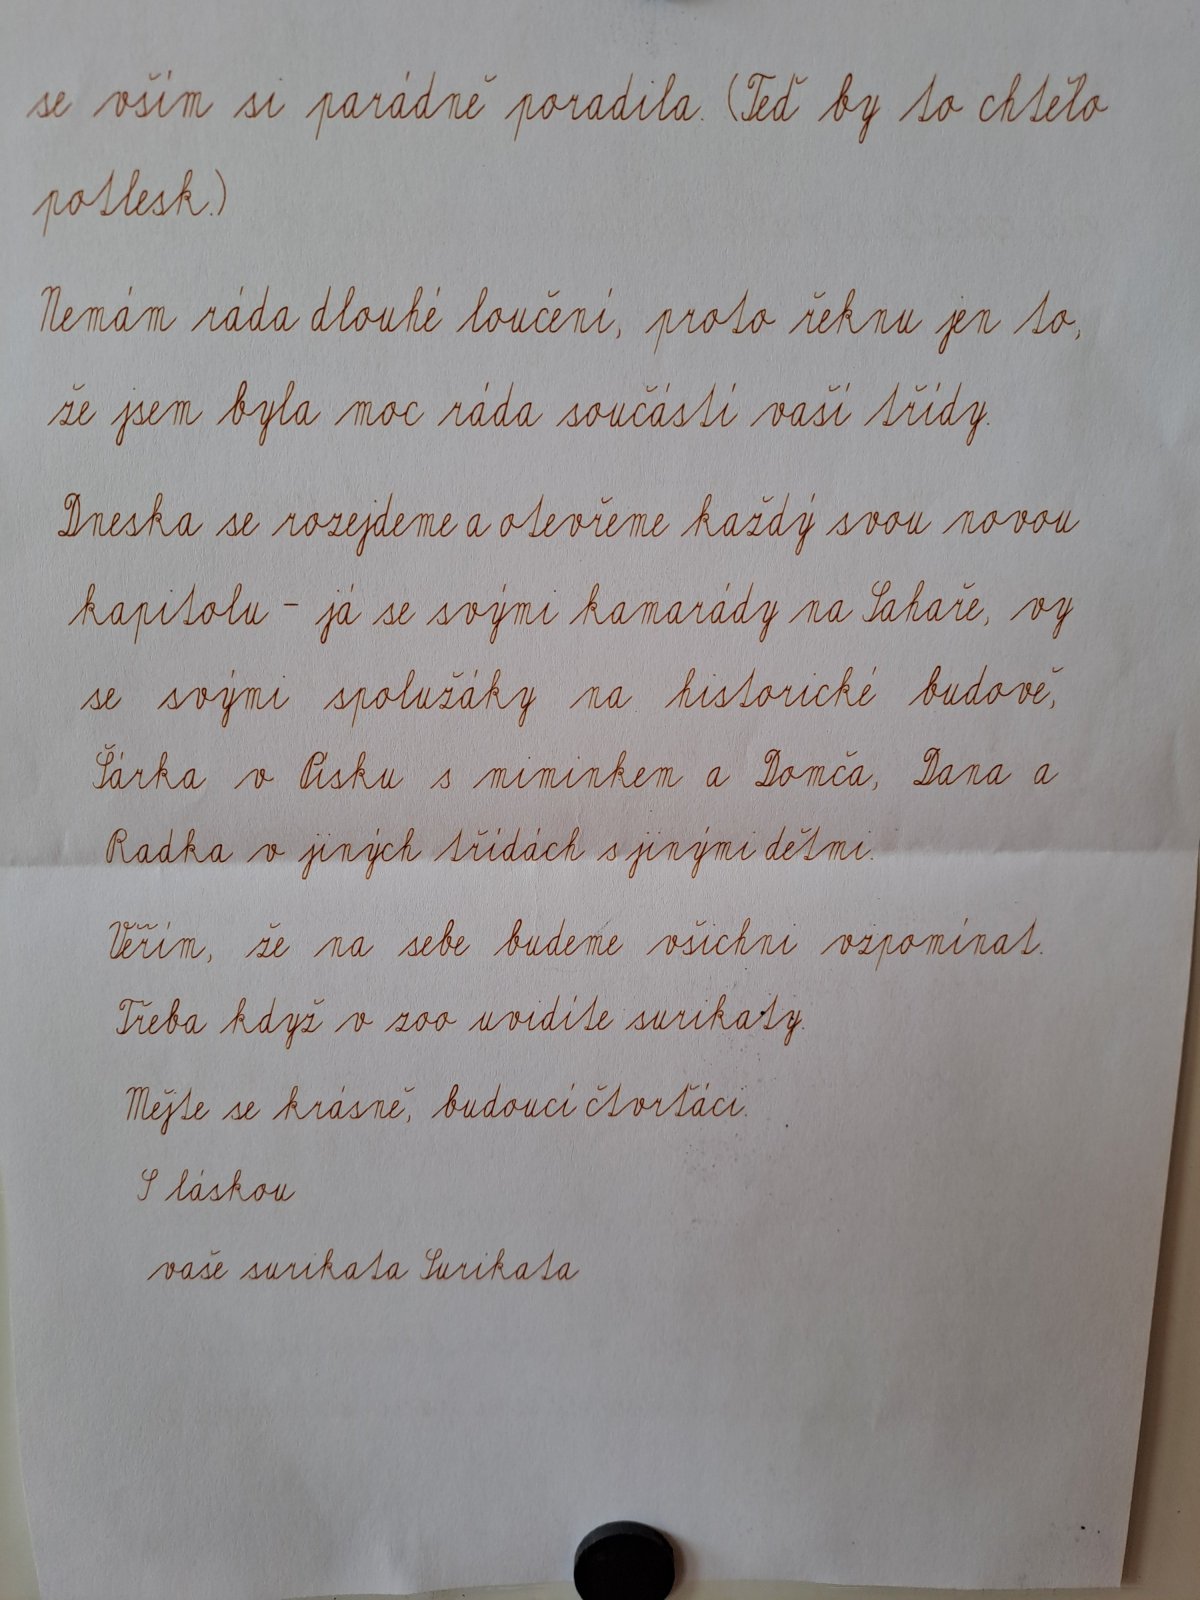 se vším si parádně poradila. (Teď by to chtělo
potlesk.)
Nemám ráda dlouhé loučení, proto řeknu jen to,
že jsem byla moc ráda součástí vaší třídy.
Dneska se rozejdeme a otevřeme každý svou novou
kapitolu – já se svými kamarády na Sahaře, vy
se svými spolužáky na historické budově,
Šárka v Písku s miminkem a Domča, Dana a
Radka v jiných třídách s jinými dětmi.
Věřím, že na sebe budeme všichni vzpomínat.
Třeba když v zoo uvidíte surikaty.
Mějte se krásně, budoucí čtvrťáci.
S láskou
vaše surikata Surikata